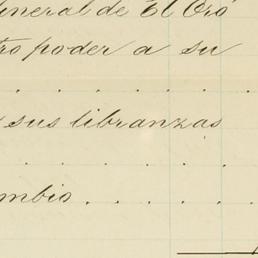 eneral de El Oro
tro poder a su
. . . . . . . .
sus libranzas
. . . . . . . .
mbio . . . . . .